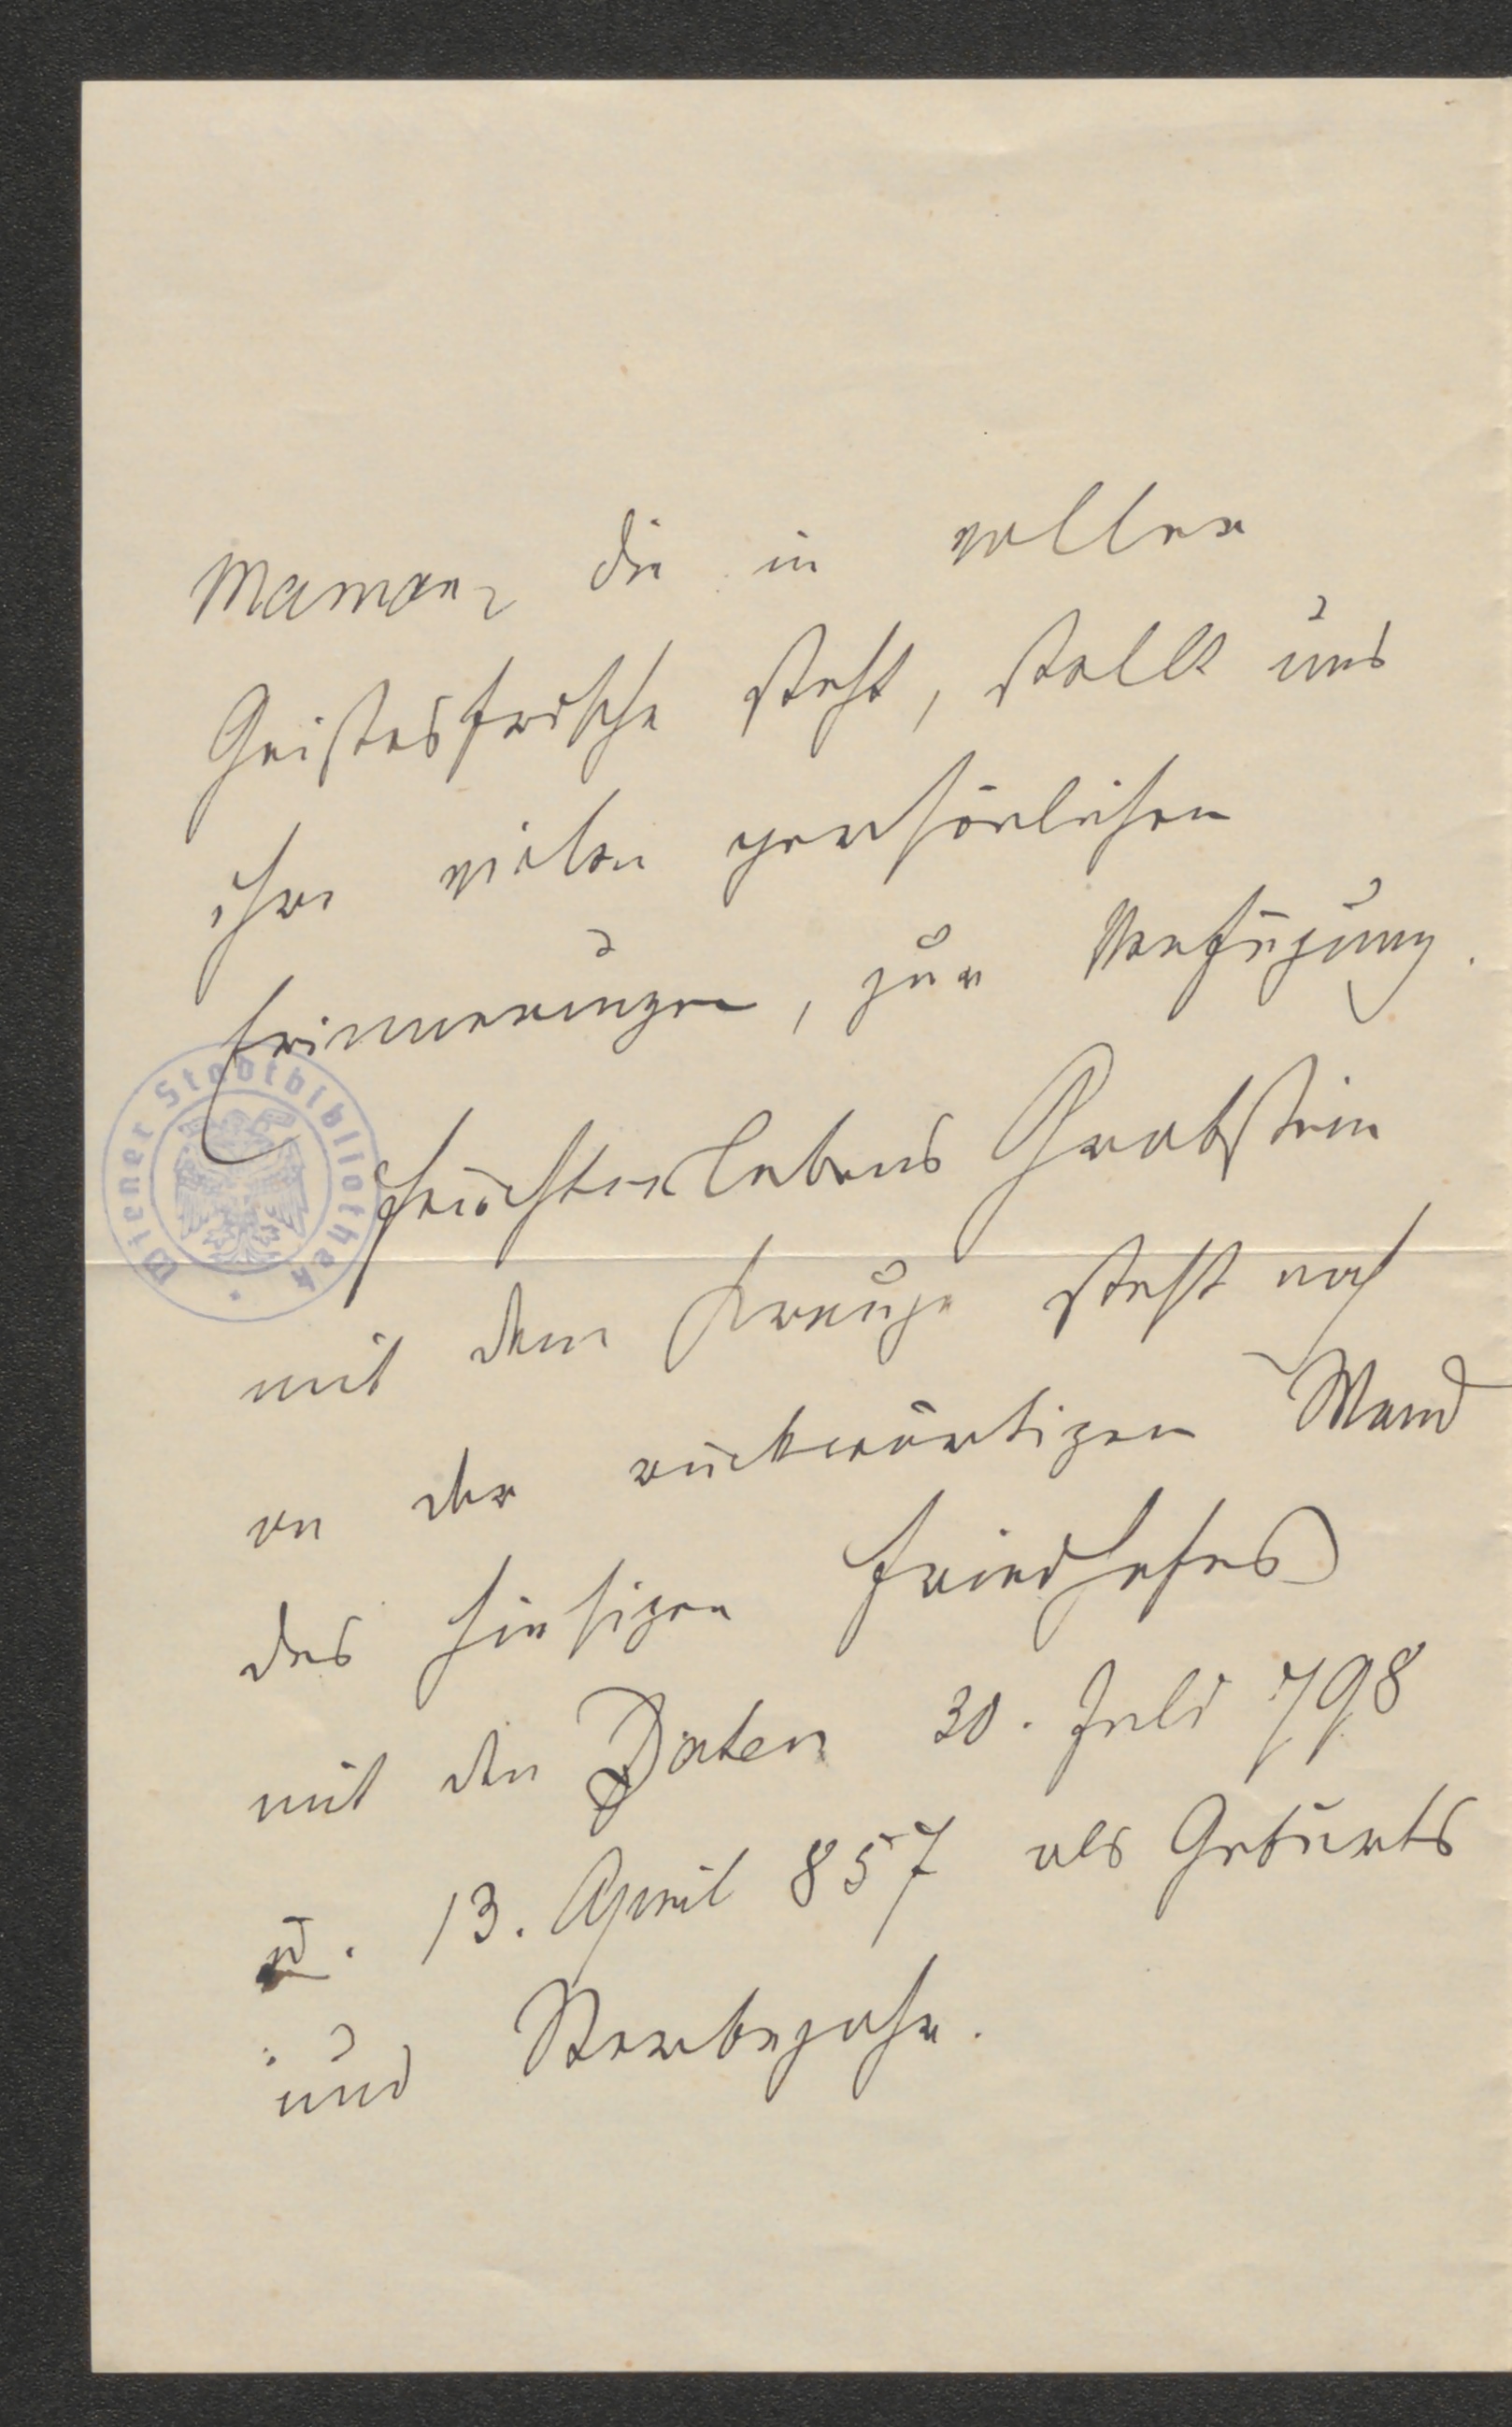 Maman, die in voller
Geistesfrische steht, stellt uns
ihre vielen persönlichen
Erinnerungen, zur Verfügung.
Feuchterslebens Grabstein
mit dem Kreuze steht noch
an der rückwärtigen Wand
des hiesigen Friedhofes
mit den Daten 30. Juli 798
u. 13. April 857 als Geburts
und Sterbejahr.
Wiener Stadtbibliothek